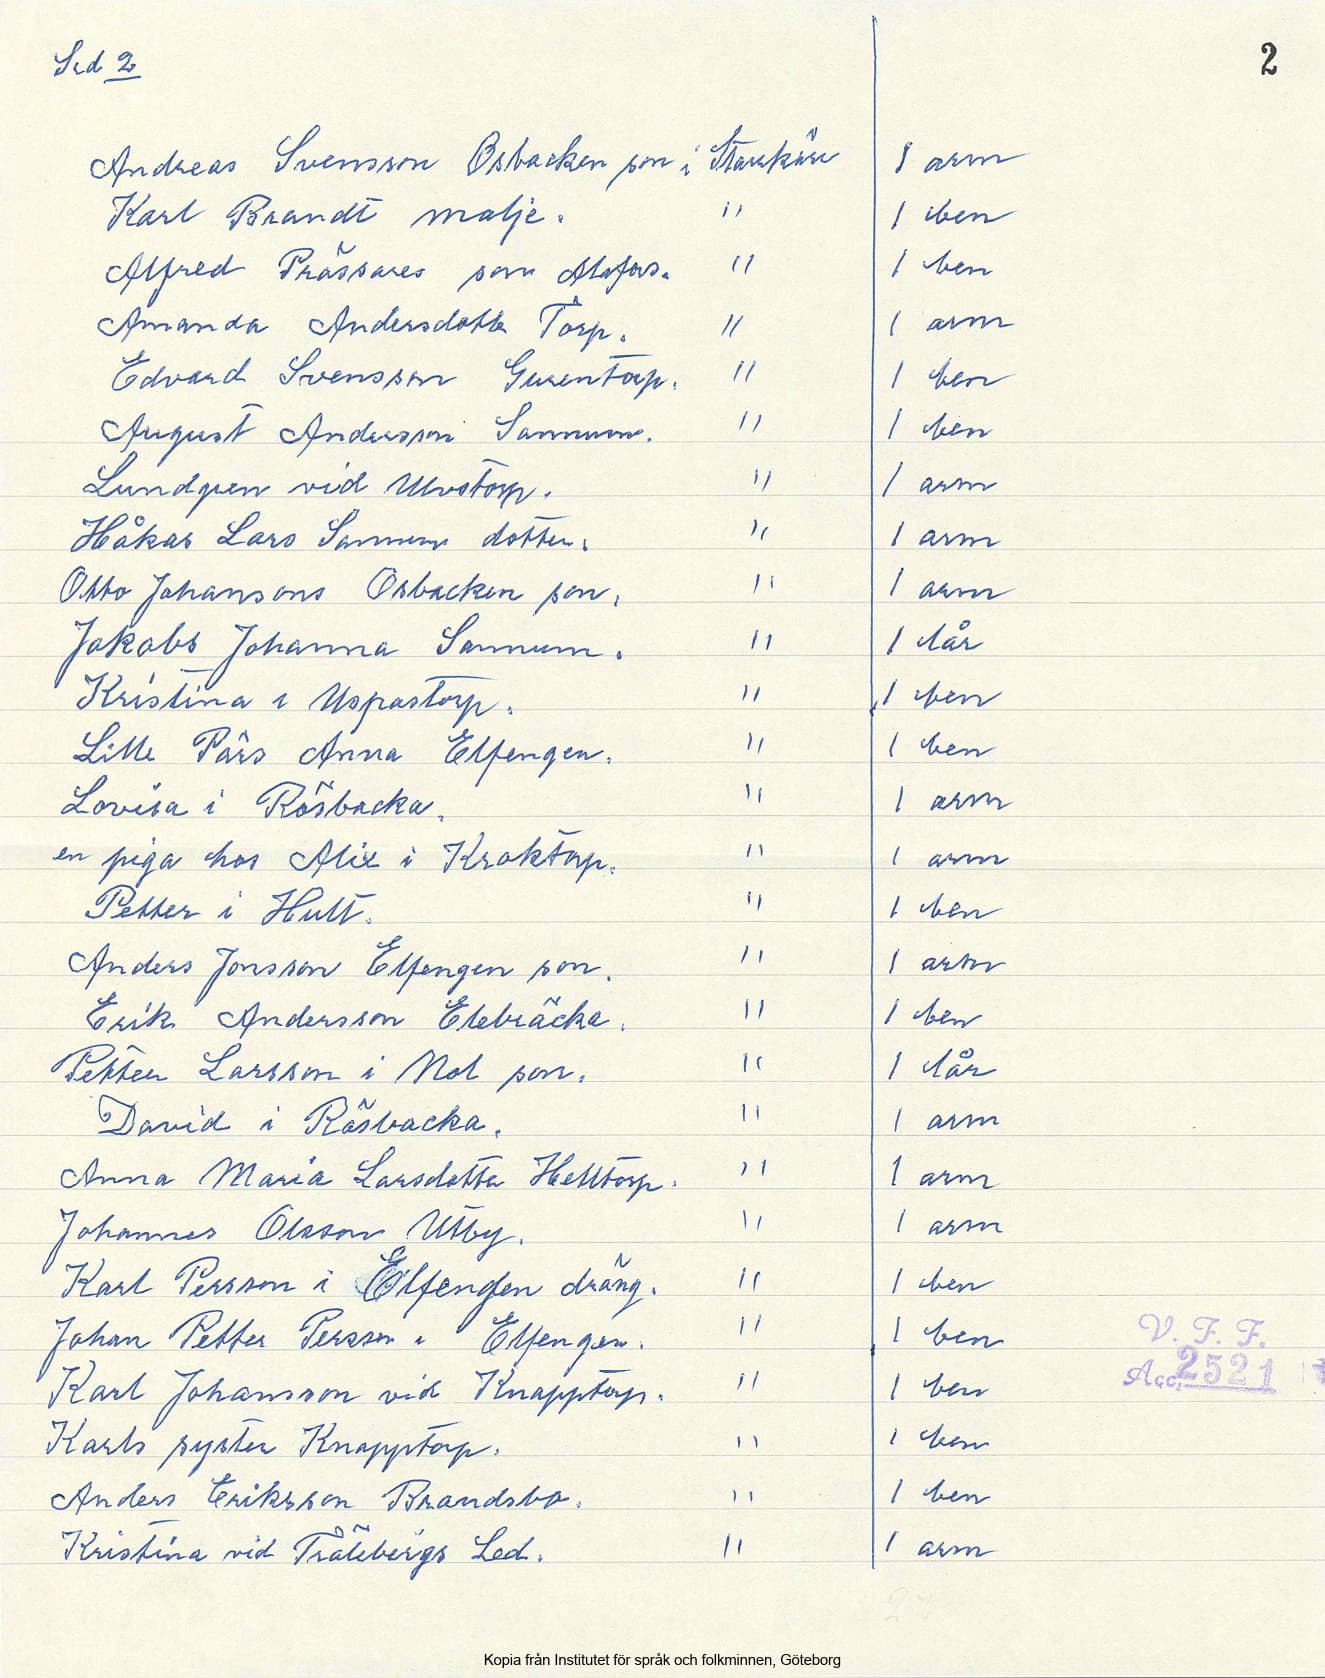 Sid 2
2
Andreas Svensson Osbacken son i Starrkärr 1 arm
Karl Brandt malje. " 1 ben
Alfred Prässares son Alafors. " 1 ben
Amanda Andersdotter Torp. " 1 arm
Edvard Svensson Gurentorp. " 1 ben
August Andersson Sannum. " 1 ben
Lundgren vid Ulvstorp. " 1 arm
Håkas Lars Sannum dotter. " 1 arm
Otto Johansons Osbacken son. " 1 arm
Jakobs Johanna Sannum. " 1 lår
Kristina i Uspastorp. " 1 ben
Lille Pärs Anna Elfengen. " 1 ben
Lovisa i Råsbacka. " 1 arm
en piga hos Alix i Kroktorp. " 1 arm
Petter i Hult. " 1 ben
Anders Jonsson Elfengen son. " 1 arm
Erik Andersson Elebräcka. " 1 ben
Petter Larsson i Nol son. " 1 lår
David i Råsbacka. " 1 arm
Anna Maria Larsdotter Helltorp. " 1 arm
Johannes Olsson Utby. " 1 arm
Karl Persson i Elfengen dräng. " 1 ben
Johan Petter Persson i Elfengen. " 1 ben
V. F. F.
Acc. 2521
Karl Johansson vid Knapptorp. " 1 ben
Karls syster Knapptorp. " 1 ben
Anders Eriksson Brandsbo. " 1 ben
Kristina vid Trälebergs Led. " 1 arm
Kopia från Institutet för språk och folkminnen, Göteborg